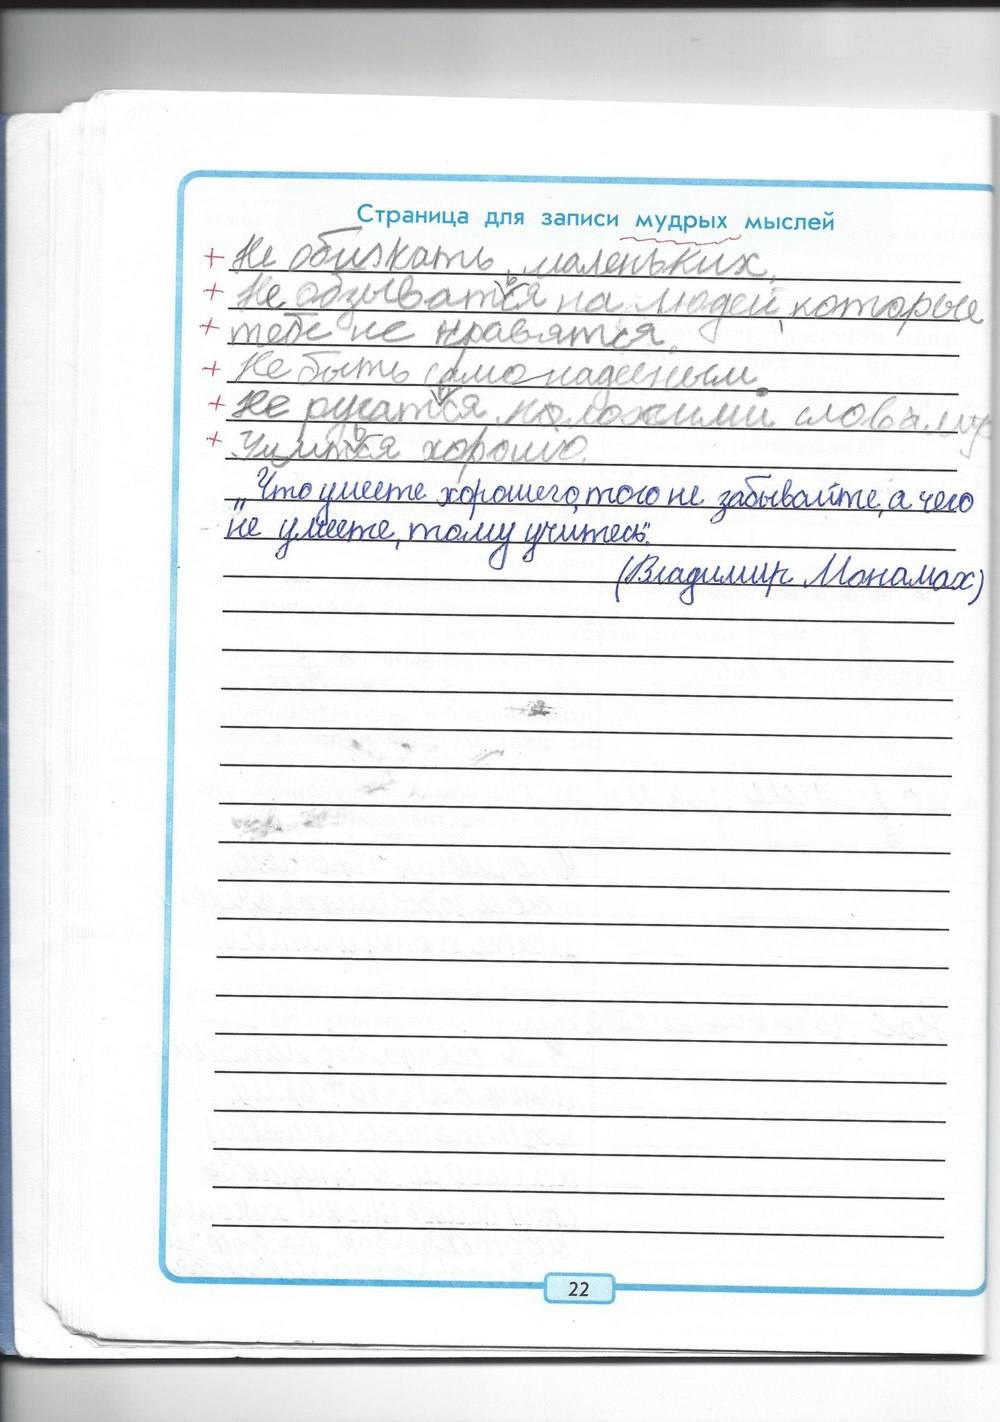 Страница для записи мудрых мыслей
+ Не обижать маленьких.
+ Не обзываться на людей, которые
+ тебе не нравятся.
+ Не быть самонадееным.
+ Не ругаться нехорошими словами
+ Учиться хорошо.
„Что умеете хорошего, того не забывайте, а чего
не умеете, тому учитесь".
(Владимир Мономах)
22